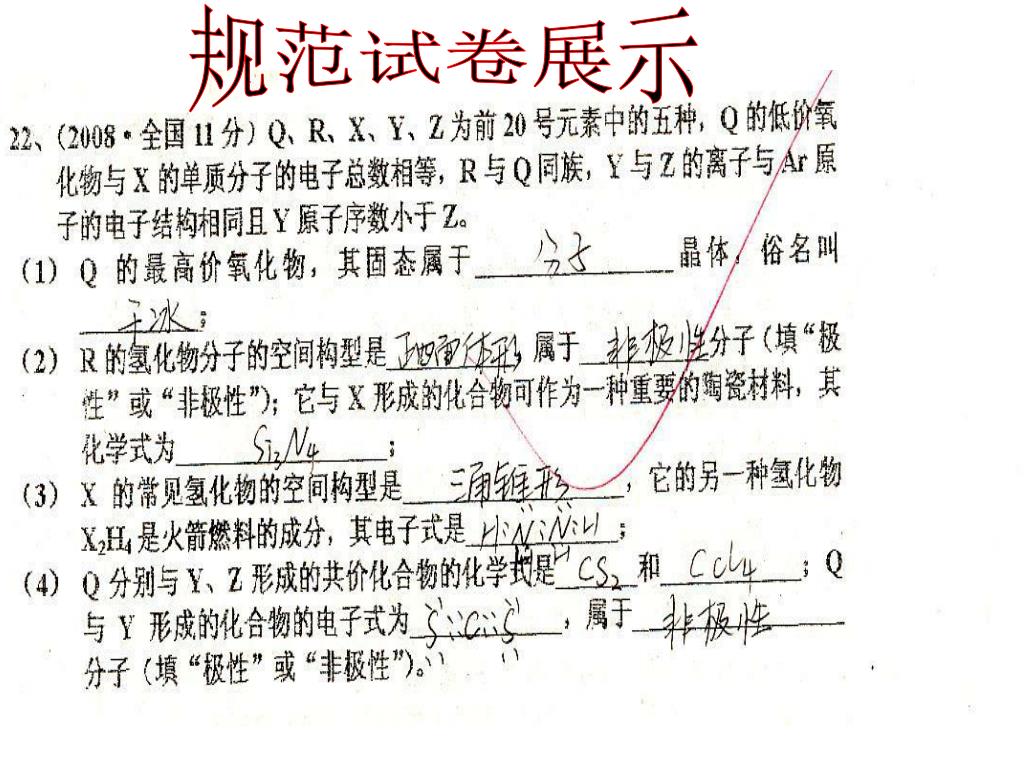 规范试卷展示
22、(2008·全国11分) Q、R、X、Y、Z为前20号元素中的五种，Q的低价氧
化物与X的单质分子的电子总数相等，R与Q同族，Y与Z的离子与Ar原
子的电子结构相同且Y原子序数小于Z。
(1) Q 的最高价氧化物，其固态属于 分子 晶体，俗名叫
干冰；
(2) R的氢化物分子的空间构型是 正四面体形，属于 非极性 分子（填“极
性”或“非极性”）；它与X形成的化合物可作为一种重要的陶瓷材料，其
化学式为 Si₃N₄ ；
(3) X 的常见氢化物的空间构型是 三角锥形 ，它的另一种氢化物
X₂H₄是火箭燃料的成分，其电子式是 H:N:N:H ；
H H
(4) Q分别与Y、Z形成的共价化合物的化学式是 CS₂ 和 CCl₄ ；Q
与 Y 形成的化合物的电子式为 S::C::S ，属于 非极性
分子（填“极性”或“非极性”）。